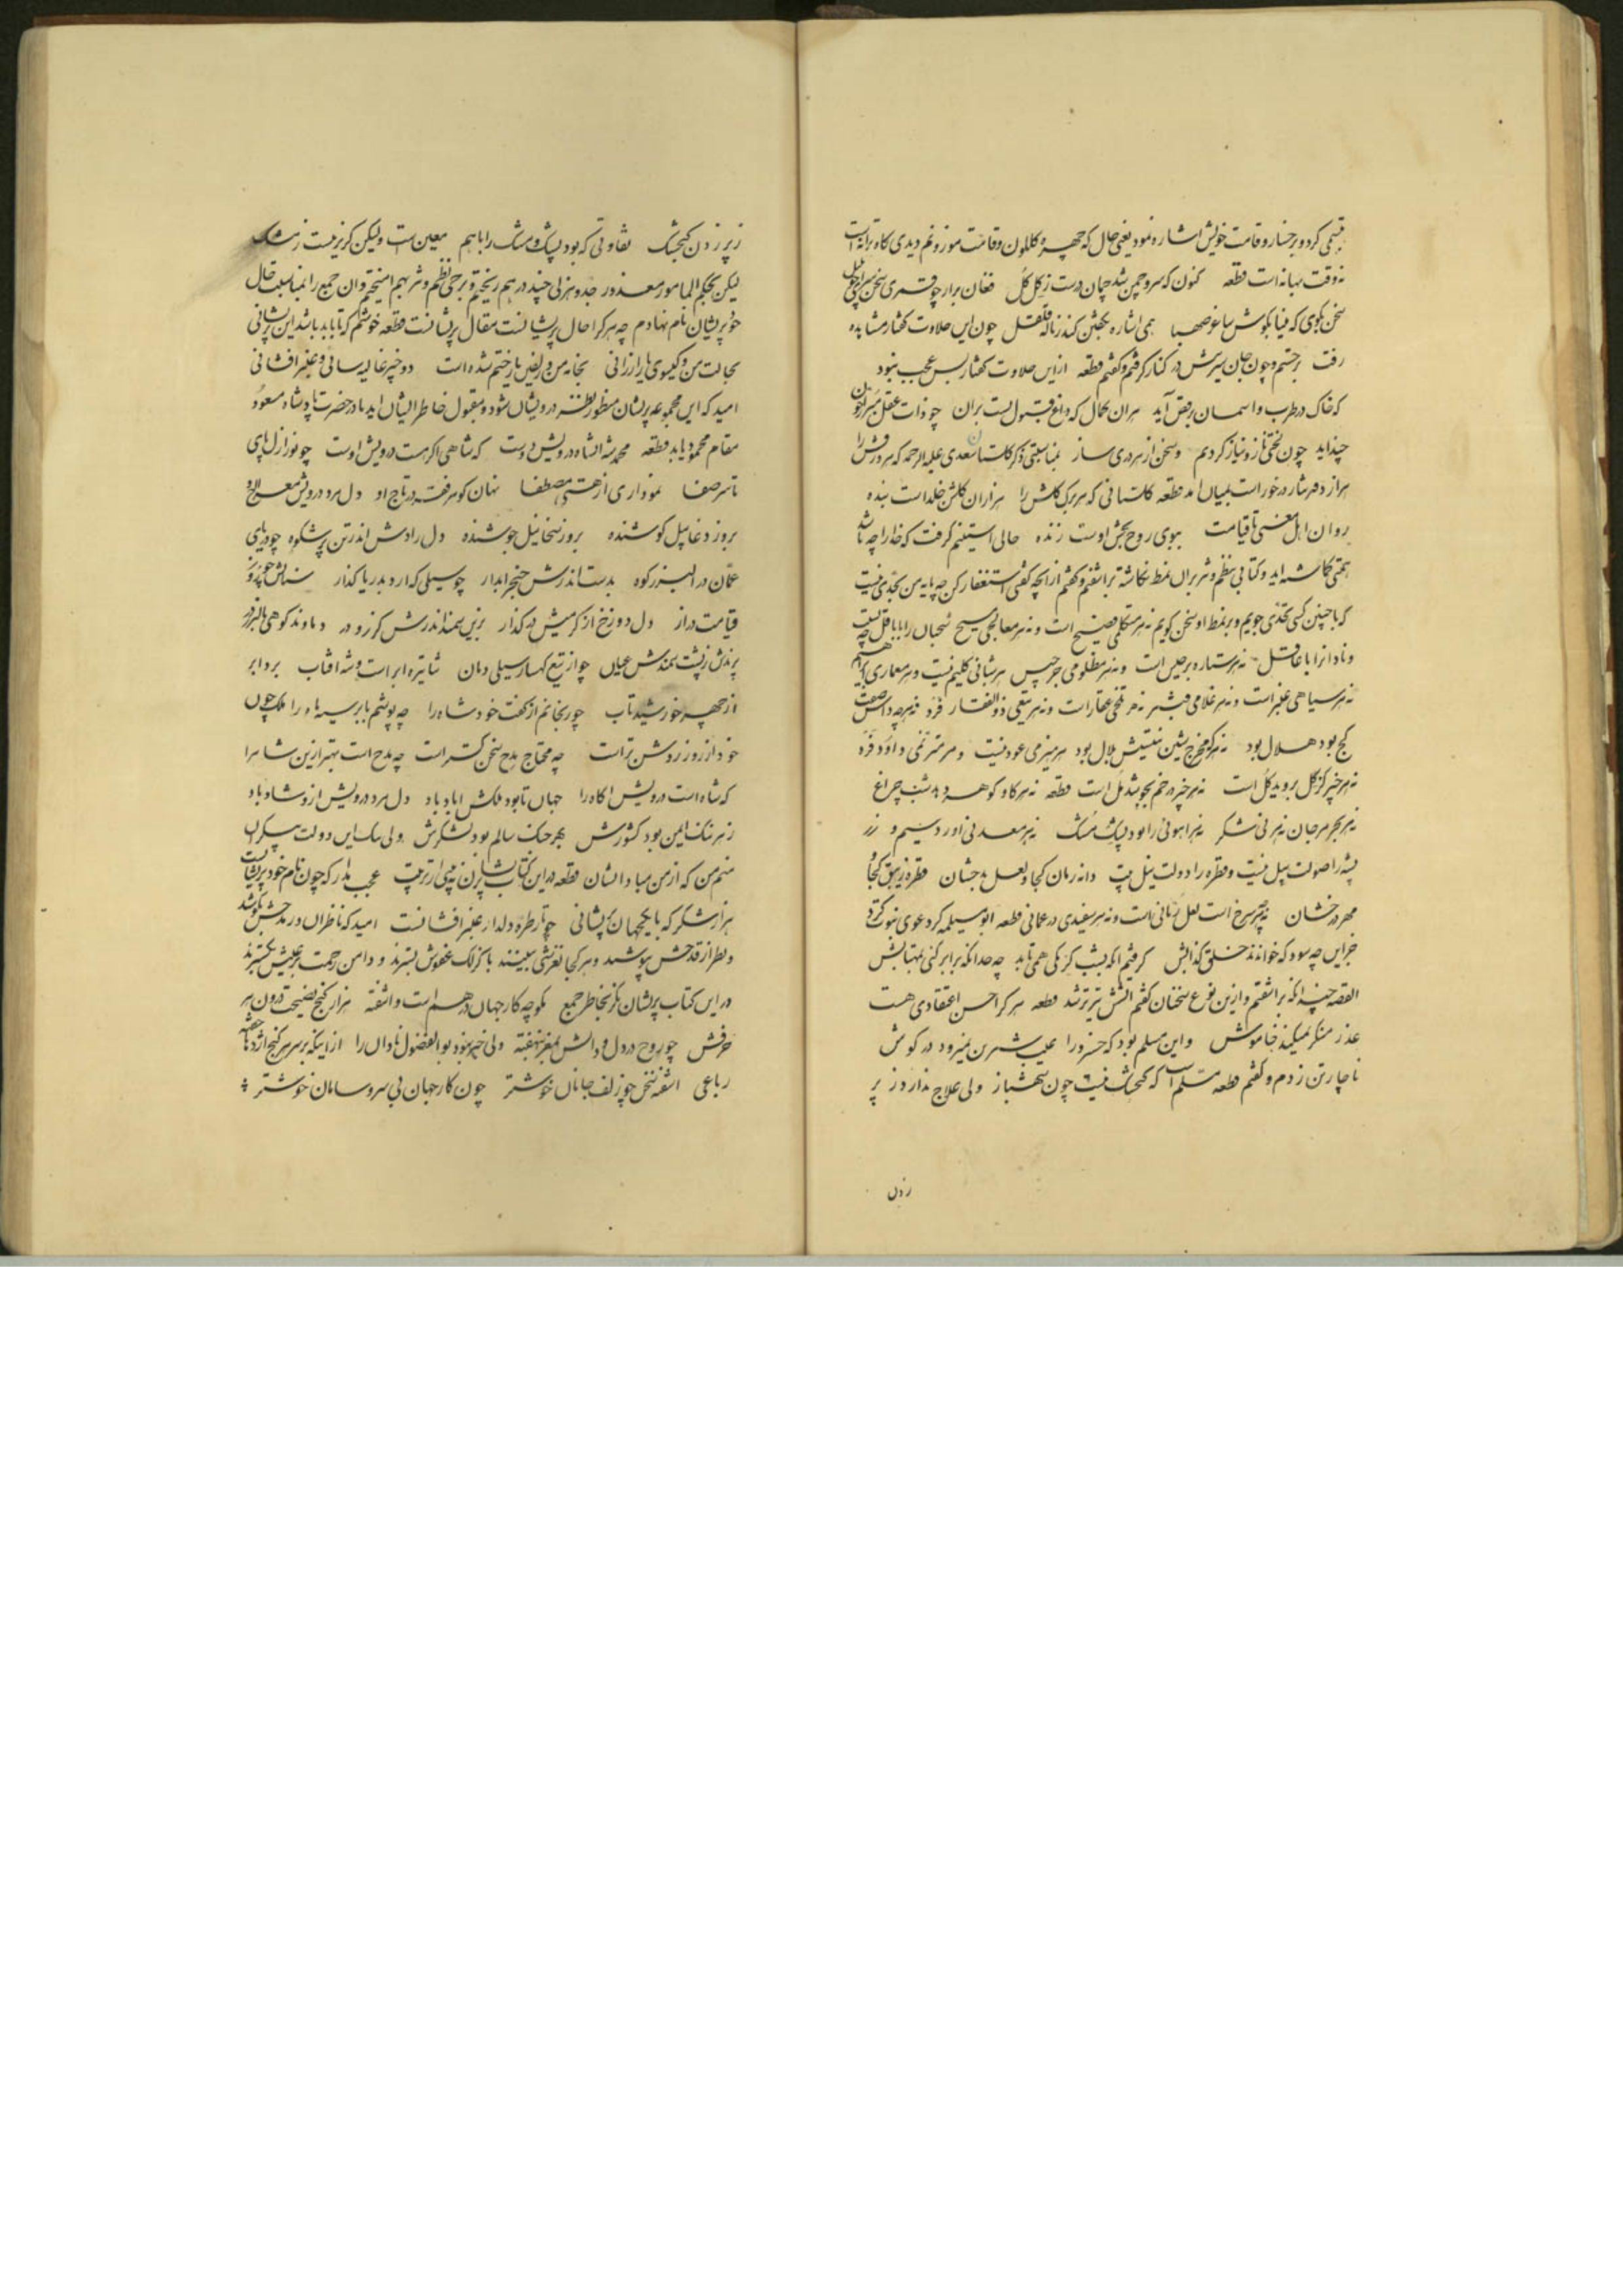 تبسمی کرد و بر رخسار و قامت خویش اشاره نمود یعنی حال که چهره گلگون و قامت موزونم دیدی گاه ترانه است
نه وقت بهانه است قطعه کنون که سرو چمن شد چمان درست ز گل گل فغان برار چو قمری سخن سرای چو بلبل
سخن بگوی که مینا بگوش ساغر صهبا همی اشاره بجستن کند ز ناله قلقل چون این حلاوت گفتار مشاهده
رفت برجستم و چون جان سیرینش در کنار گرفتم و گفتم قطعه از این حلاوت گفتار بس عجب نبود
که خاک در طرب و اسمان برقص آید بران کمال که داغ قبول نیست بران چو ذات عقل مبراز
چند اید چون لختی ناز و نیاز کردیم و سخن از هر دری ساز بمناسبتی ذکر گلستان سعدی علیه الرحمه که سرورقش را
هزار دفتر شار در خور است بمیان امد قطعه گلستانی که هر برگ گلش را هزاران گلشن خلد است بنده
روان اهل معنی تا قیامت ببوی روح بخش اوست زنده حالی استینم گرفت که خدا را چه باشد
همتی گماشته اید و کتابی بنظم و نثر بران نمط نگاشته براشفتم و گفتم از انچه گفتی استغفار کن چه پایه من بحدی نیست
که با چنین کسی تحدی جویم و بر نمط او سخن گویم نه هر متکلمی فصیح است و نه هر معالجی مسیح سحبان را با باقل چه نسبت
و نادانرا با عاقل نه هر ستاره برجیس است و نه هر مظلومی جرجیس هر شبانی کلیم نیست و هر معماری ابراهیم
نه هر سیاهی عنبر است و نه هر غلامی قنبر نه هر تلخی عقار است و نه هر تیغی ذوالفقار فرد نه هر چه داس صفت
کج بود هلال بود نه هر که مخرج شین نیستش بلال بود هر هیزمی عود نیست و هر مترنمی داود فرد
نه هر خیر کز گل بروید گل است نه هر چیز در خم بجوشد مل است قطعه نه هر گاو گوهر دهد شب چراغ
نه هر بحر مرجان نه هر نی شکر نه هر اهوئی را بود پشک مشک نه هر معدنی اورد سیم و زر
پشه را صولت پیل نیست و قطره را دولت نیل نه دانه رمان کجا و لعل بدخشان قطره زیبق کجا و
مهر درخشان نه هر سرخ است لعل رمانی است و نه هر سفیدی در عمانی قطعه ابو مسیلمه کرد دعوی نبوت کرد
جز این چه سود که خوانند خلق کذابش گرفتم انکه بشب کرمکی همی تابد چه حد انکه برابر کنی بمهتابش
القصه چندانکه براشفتم و ازین نوع سخنان گفتم اتشش تیزتر شد قطعه هر کرا حسن اعتقادی هست
عذر منکر نمیکند خاموش و این مسلم بود که خسرو را عیب شیرین نمیرود در گوش
ناچار تن زدم و گفتم قطعه مسلم است که گنجشک نیست چون شهباز ولی علاج ندارد ز پر
زدن
ز پر زدن گنجشک تفاوتی که بود پشک و مشک را با هم معین است ولیکن گریز نیست ز مشک
لیکن بحکم المامور معذور جد و هزلی چند در هم ریختم و برخی نظم و نثر بهم امیختم و ان جمع را بمناسبت حال
خود پریشان نام نهادم چه هر کرا حال پریشانست مقال پریشانست قطعه خوشم که تا به ابد باشد این پریشانی
بحالت من و گیسوی یار ارزانی بخامه من و زلفین یار ختم شده است دو چیز غالیه سائی و عنبر افشانی
امید که این مجموعه پریشان منظور نظر درویشان شود و مقبول خاطر ایشان اید تا در حضرت پادشاه مسعود
مقام محمود یابد قطعه محمد شه انشاه درویش دوست که شاهی اگر هست درویش اوست چو نور ازل پای
تا سر صفا نموداری از هستی مصطفا نهان گوهر فقر در تاج او دل مرد درویش معراج او
بروز دغا پیل کوشنده بروز سخا نیل جوشنده دل رادش اندر تن پر شکوه چو دریای
عمان در البرز کوه بدست اندرش خنجر ابدار چو سیلی که ارد بدریا گذار سنانش چو روز
قیامت دراز دل دوزخ از گرمیش در گداز بزین سمند اندرش گرز و در دماوند کوهی بالبرز در
پرندش ز پشت سمندش عیان چو از تیغ کهسار سیلی دمان شها تیره ابر است و شه افتاب برد ابر
از چهر خورشید تاب چو ریحانم از گفت خود شاه را چه پوشم بابر سیه ماه را ملک چون
خود از روز روشن تر است چه محتاج مدح سخن گستر است چه مدح است بهتر ازین شاه را
که شاه است درویش اگاه را جهان تا بود ملکش اباد باد دل مرد درویش ازو شاد باد
ز نیرنگ ایمن بود کشورش بهر جنگ سالم بود لشکرش ولی سایه این دولت بیکران
منم من که از من مبادا نشان قطعه در این کتاب پریشان نه بینی از ترتیب عجب مدار که چون نام خود پریشانست
هزار شکر که با یکجهان پریشانی چو تار طره دلدار عنبر افشانست امید که ناظران در مدحش بکوشند
و نظر از قدحش بپوشند و هر کجا لغزشی بینند با کزلک عفوش بسترند و دامن رحمت بر عیبش بگسترند
در این کتاب پریشان نگر بخاطر جمع مگو چه کار جهان در هم است و اشفته هزار گنج نصیحت درون هر
حرفش چو روح در دل و دانش بمغز نهفته ولی خبر نبود بوالفضول نادان را از اینکه بر سر هر گنج اژدها خفته
رباعی اشفته سخن چو زلف جانان خوشتر چون کار جهان بی سر و سامان خوشتر